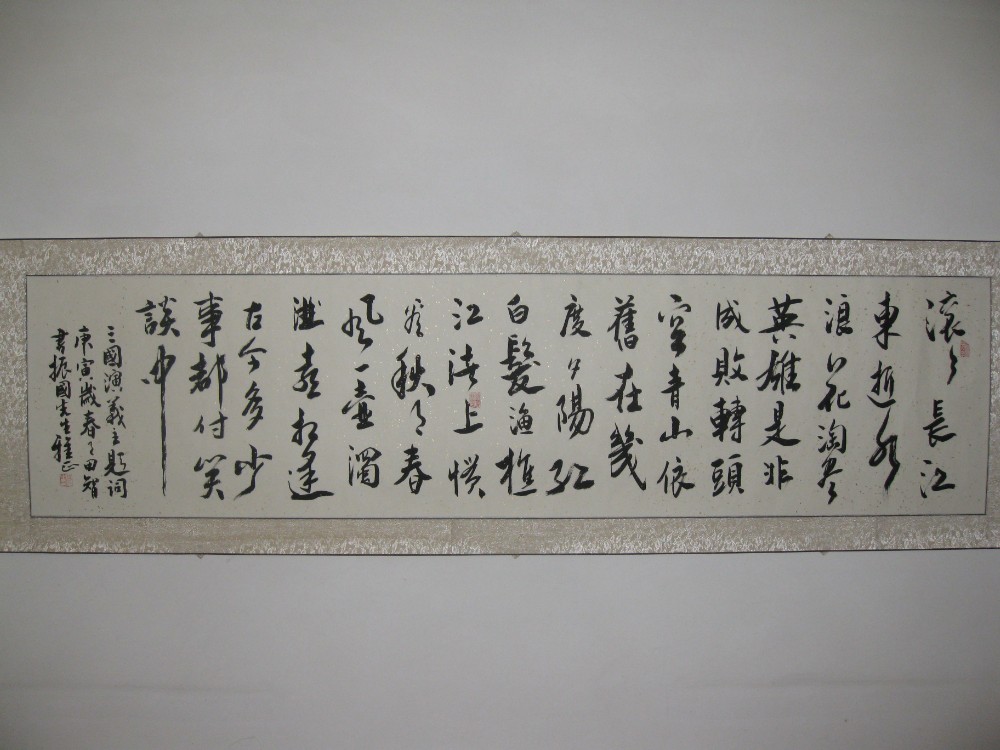 滚々長江
東逝水
浪花淘尽
英雄是非
成敗轉頭
空青山依
舊在幾
度夕陽红
白髮渔樵
江渚上惯
看秋月春
风一壺濁
酒喜相逢
古今多少
事都付笑
談中
三國演義主题词
庚寅歲春月田智
書振國先生雅正